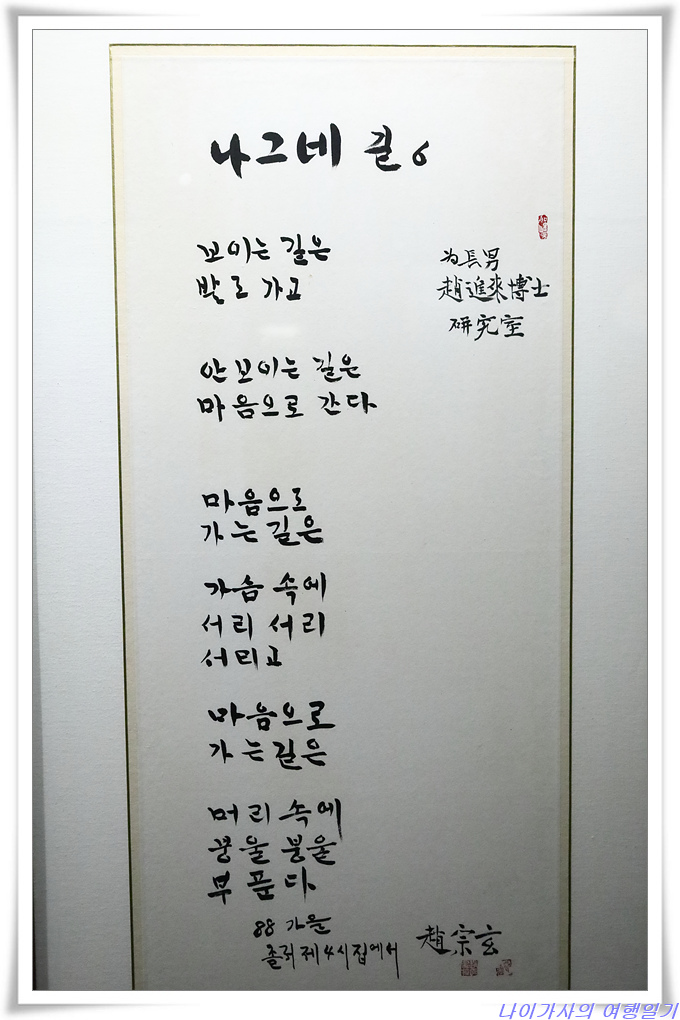 나그네 길 6
보이는 길은
발로 가고
안 보이는 길은
마음으로 간다
마음으로
가는 길은
가슴 속에
서리 서리
서리고
마음으로
가는 길은
머리 속에
뭉울 뭉울
부푼다
88 가을
졸저 제4시집에서
趙宗玄
为長男
趙進來博士
研究室
나이가사의 여행일기